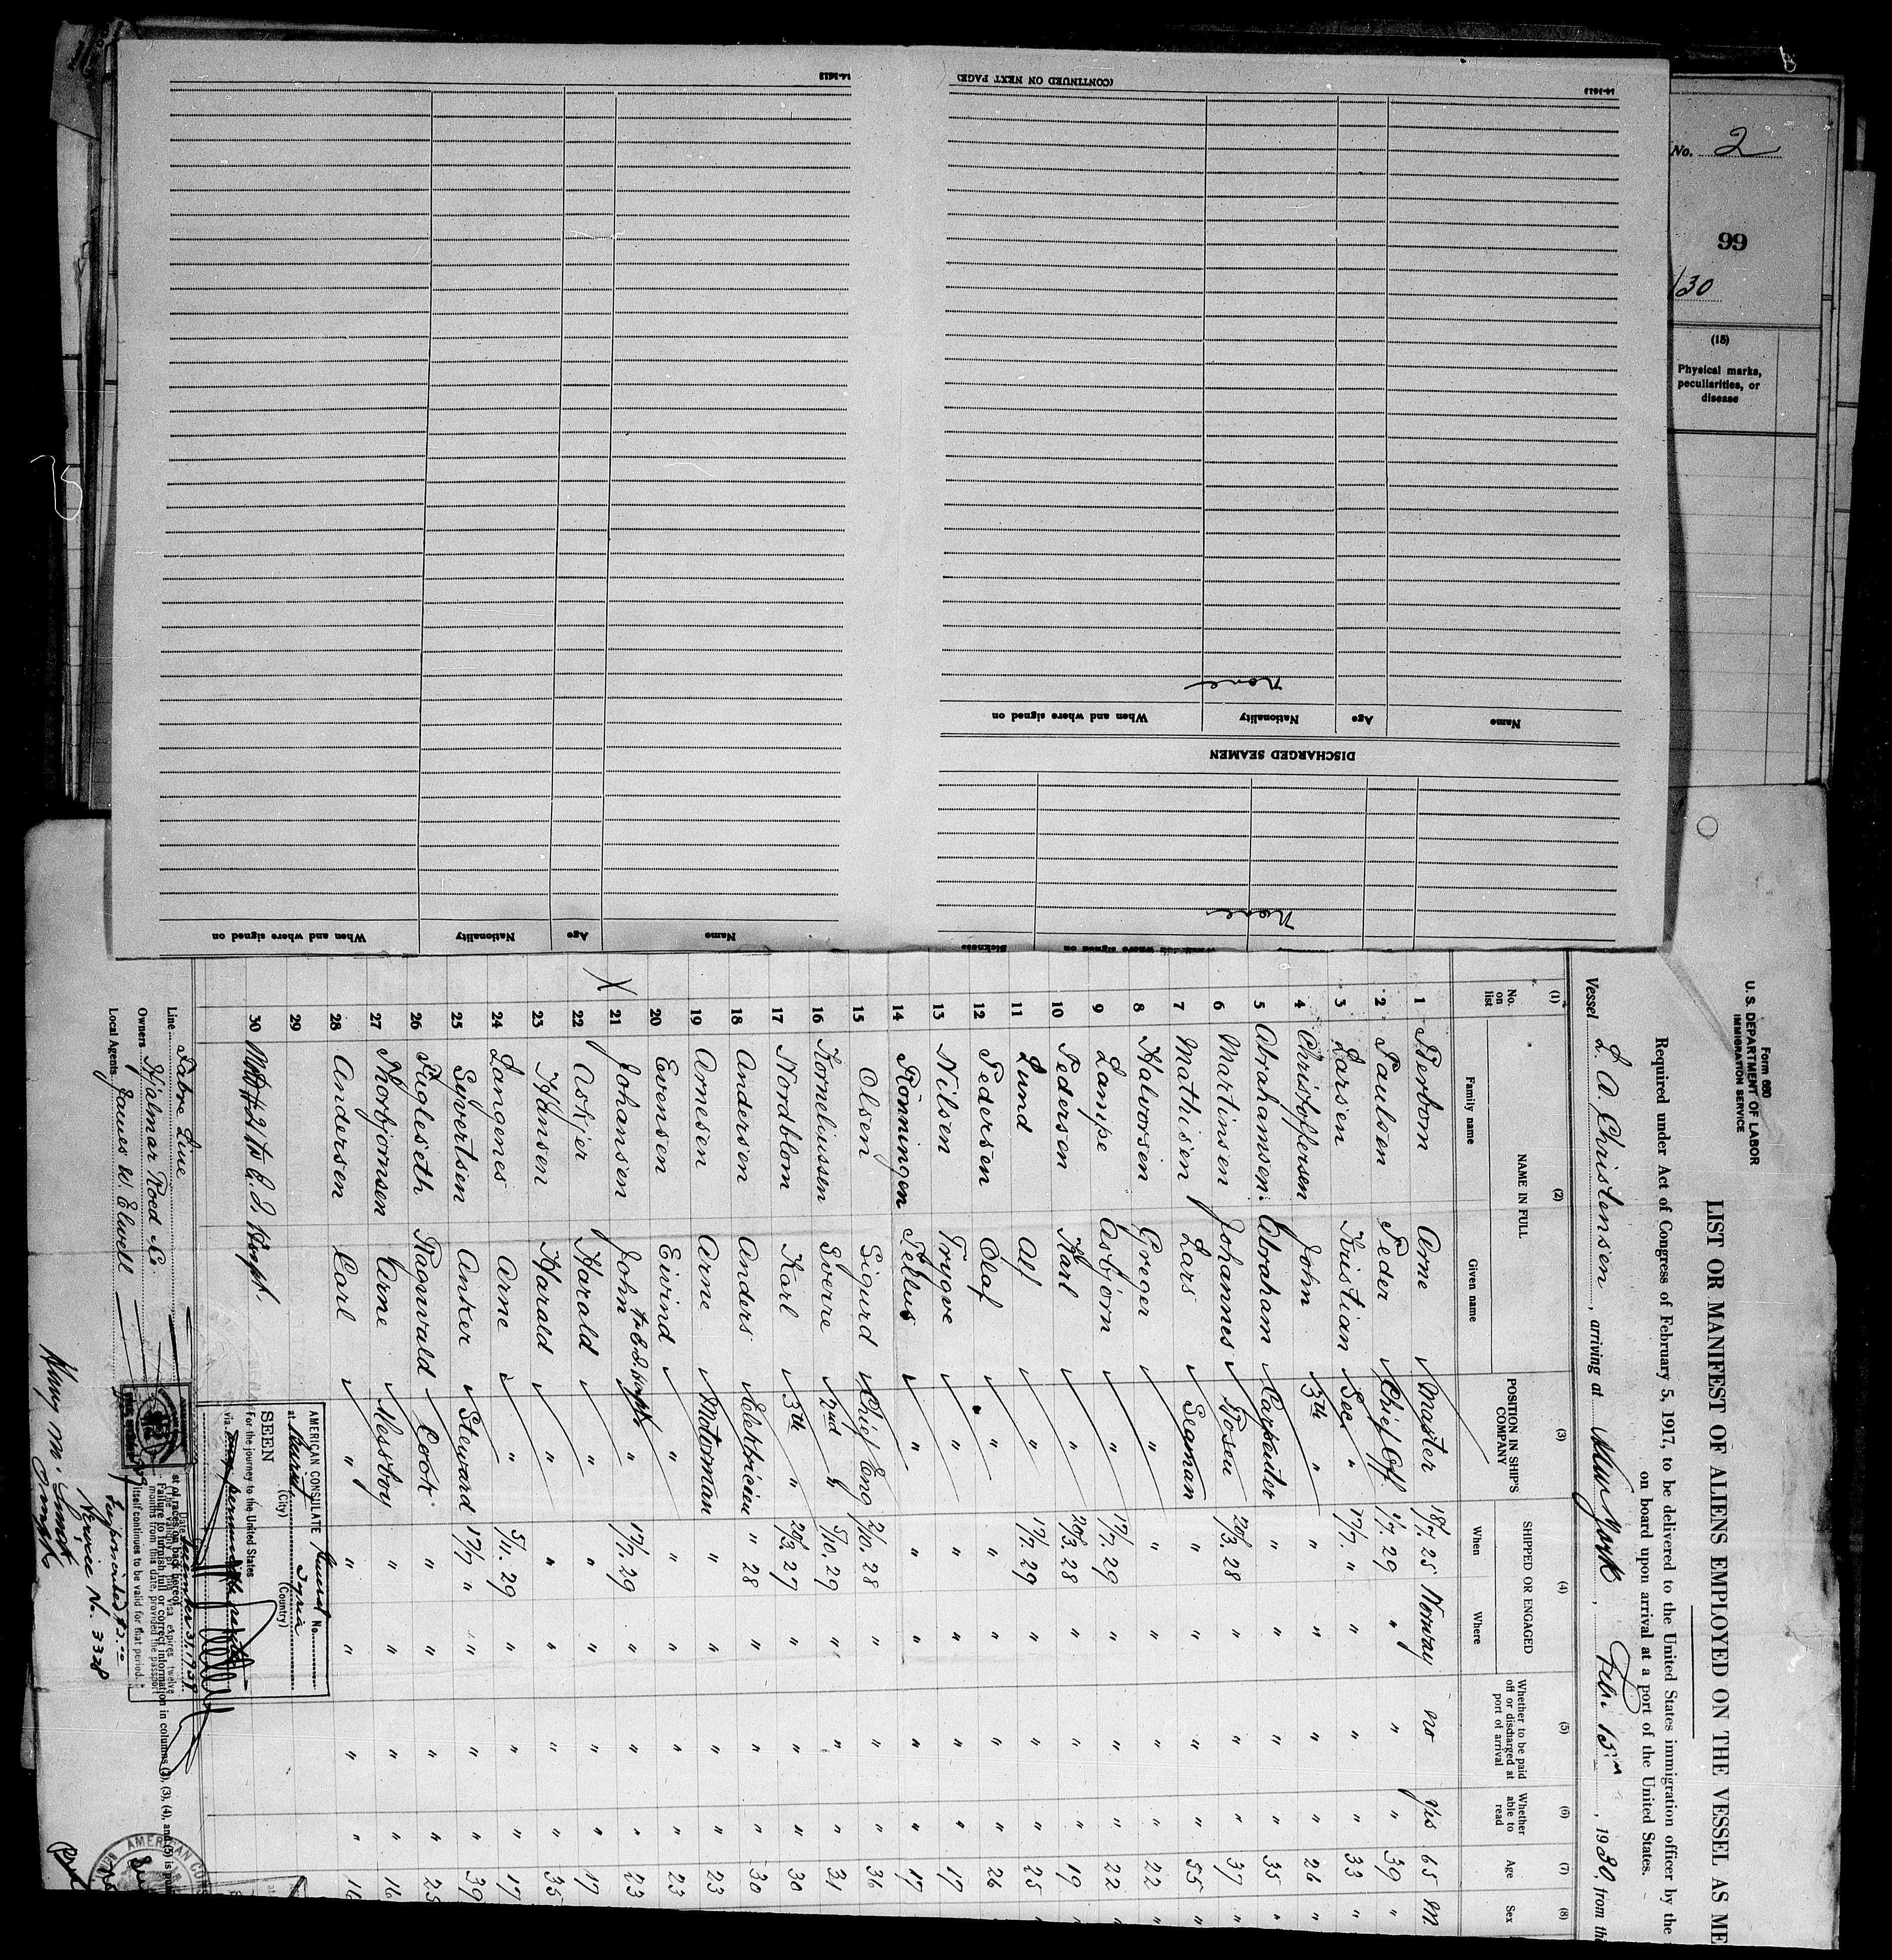 No. 2
99
/30
(15)
Physical marks, peculiarities, or disease
14-1613
(CONTINUED ON NEXT PAGE)
14-1613
none
Name Age Nationality When and where signed on
DISCHARGED SEAMEN
none
Sickness
Name Age Nationality When and where signed on
Form 680
U. S. DEPARTMENT OF LABOR
IMMIGRATION SERVICE
LIST OR MANIFEST OF ALIENS EMPLOYED ON THE VESSEL AS ME
Required under Act of Congress of February 5, 1917, to be delivered to the United States immigration officer by the
on board upon arrival at a port of the United States.
Vessel L. A. Christensen, arriving at New York, Feb. 15th, 1930, from the
(1) (2) (3) (4) (5) (6) (7) (8)
No. on list NAME IN FULL POSITION IN SHIP'S COMPANY SHIPPED OR ENGAGED Whether to be paid off or discharged at port of arrival Whether able to read Age Sex
Family name Given name When Where
1 Arne Master 18/7. 25 Norway no yes 65 M.
2 Paulsen Peder Chief Off. 1/7. 29 " " " 39 "
3 Larsen Kristian Sec " 17/7. " " " " 33 "
4 Christoffersen John 3th " " " " " 26 "
5 Abrahamsen Abraham Carpenter " " " " 35 "
6 Martinsen Johannes Bosen 20/3. 28 " " " 37 "
7 Mathisen Lars Seaman " " " " 55 "
8 Halvorsen Greger " " " " " 22 "
9 Lampe Asbjorn " 17/7. 29 " " " 22 "
10 Pedersen Karl " 20/3. 28 " " " 19 "
11 Lund Alf " 17/7. 29 " " " 25 "
12 Pedersen Olaf " " " " " 26
13 Nilsen Trygve " " " " " 17
14 Rönningen Tellus " " " " " 17
15 Olsen Sigurd Chief Eng 2/10. 28 " " " 36
16 Korneliussen Sverre 2nd " 5/10. 29 " " " 31
17 Nordblom Karl 3th " 20/3. 27 " " " 30
18 Andersen Anders Elektricien " 28 " " " 30
19 Arnesen Arne Motorman " " " " 23
20 Evensen Eivind " " " " " 23
21 Johansen John " 17/7. 29 " " " 23
22 Askjer Harald " " " " " 17
23 Hansen Harald " " " " " 35
24 Langenes Arne " 5/11. 29 " " " 17
25 Syvertsen Anker Steward 17/7 " " " " 39
26 Fugleseth Ragnvald Cook " " " " 25
27 Thorbjornsen Arne Messboy " " " " 16
28 Andersen Carl " " " " " 16
29
30
Line Fabre Line
Owners Hjalmar Roed Co.
Local Agents James W. Elwell
AMERICAN CONSULATE General No.
at Beirut Syria
(City) (Country)
SEEN
For the journey to the United States
via
Date December 31, 1929
The validity of this visa expires twelve
months from this date, provided the passport
itself continues to be valid for that period.
at of races on back hereof.
Failure to furnish full or correct information in columns (2), (3), (4), and (5) is
Service No. 3328
AMERICAN CON